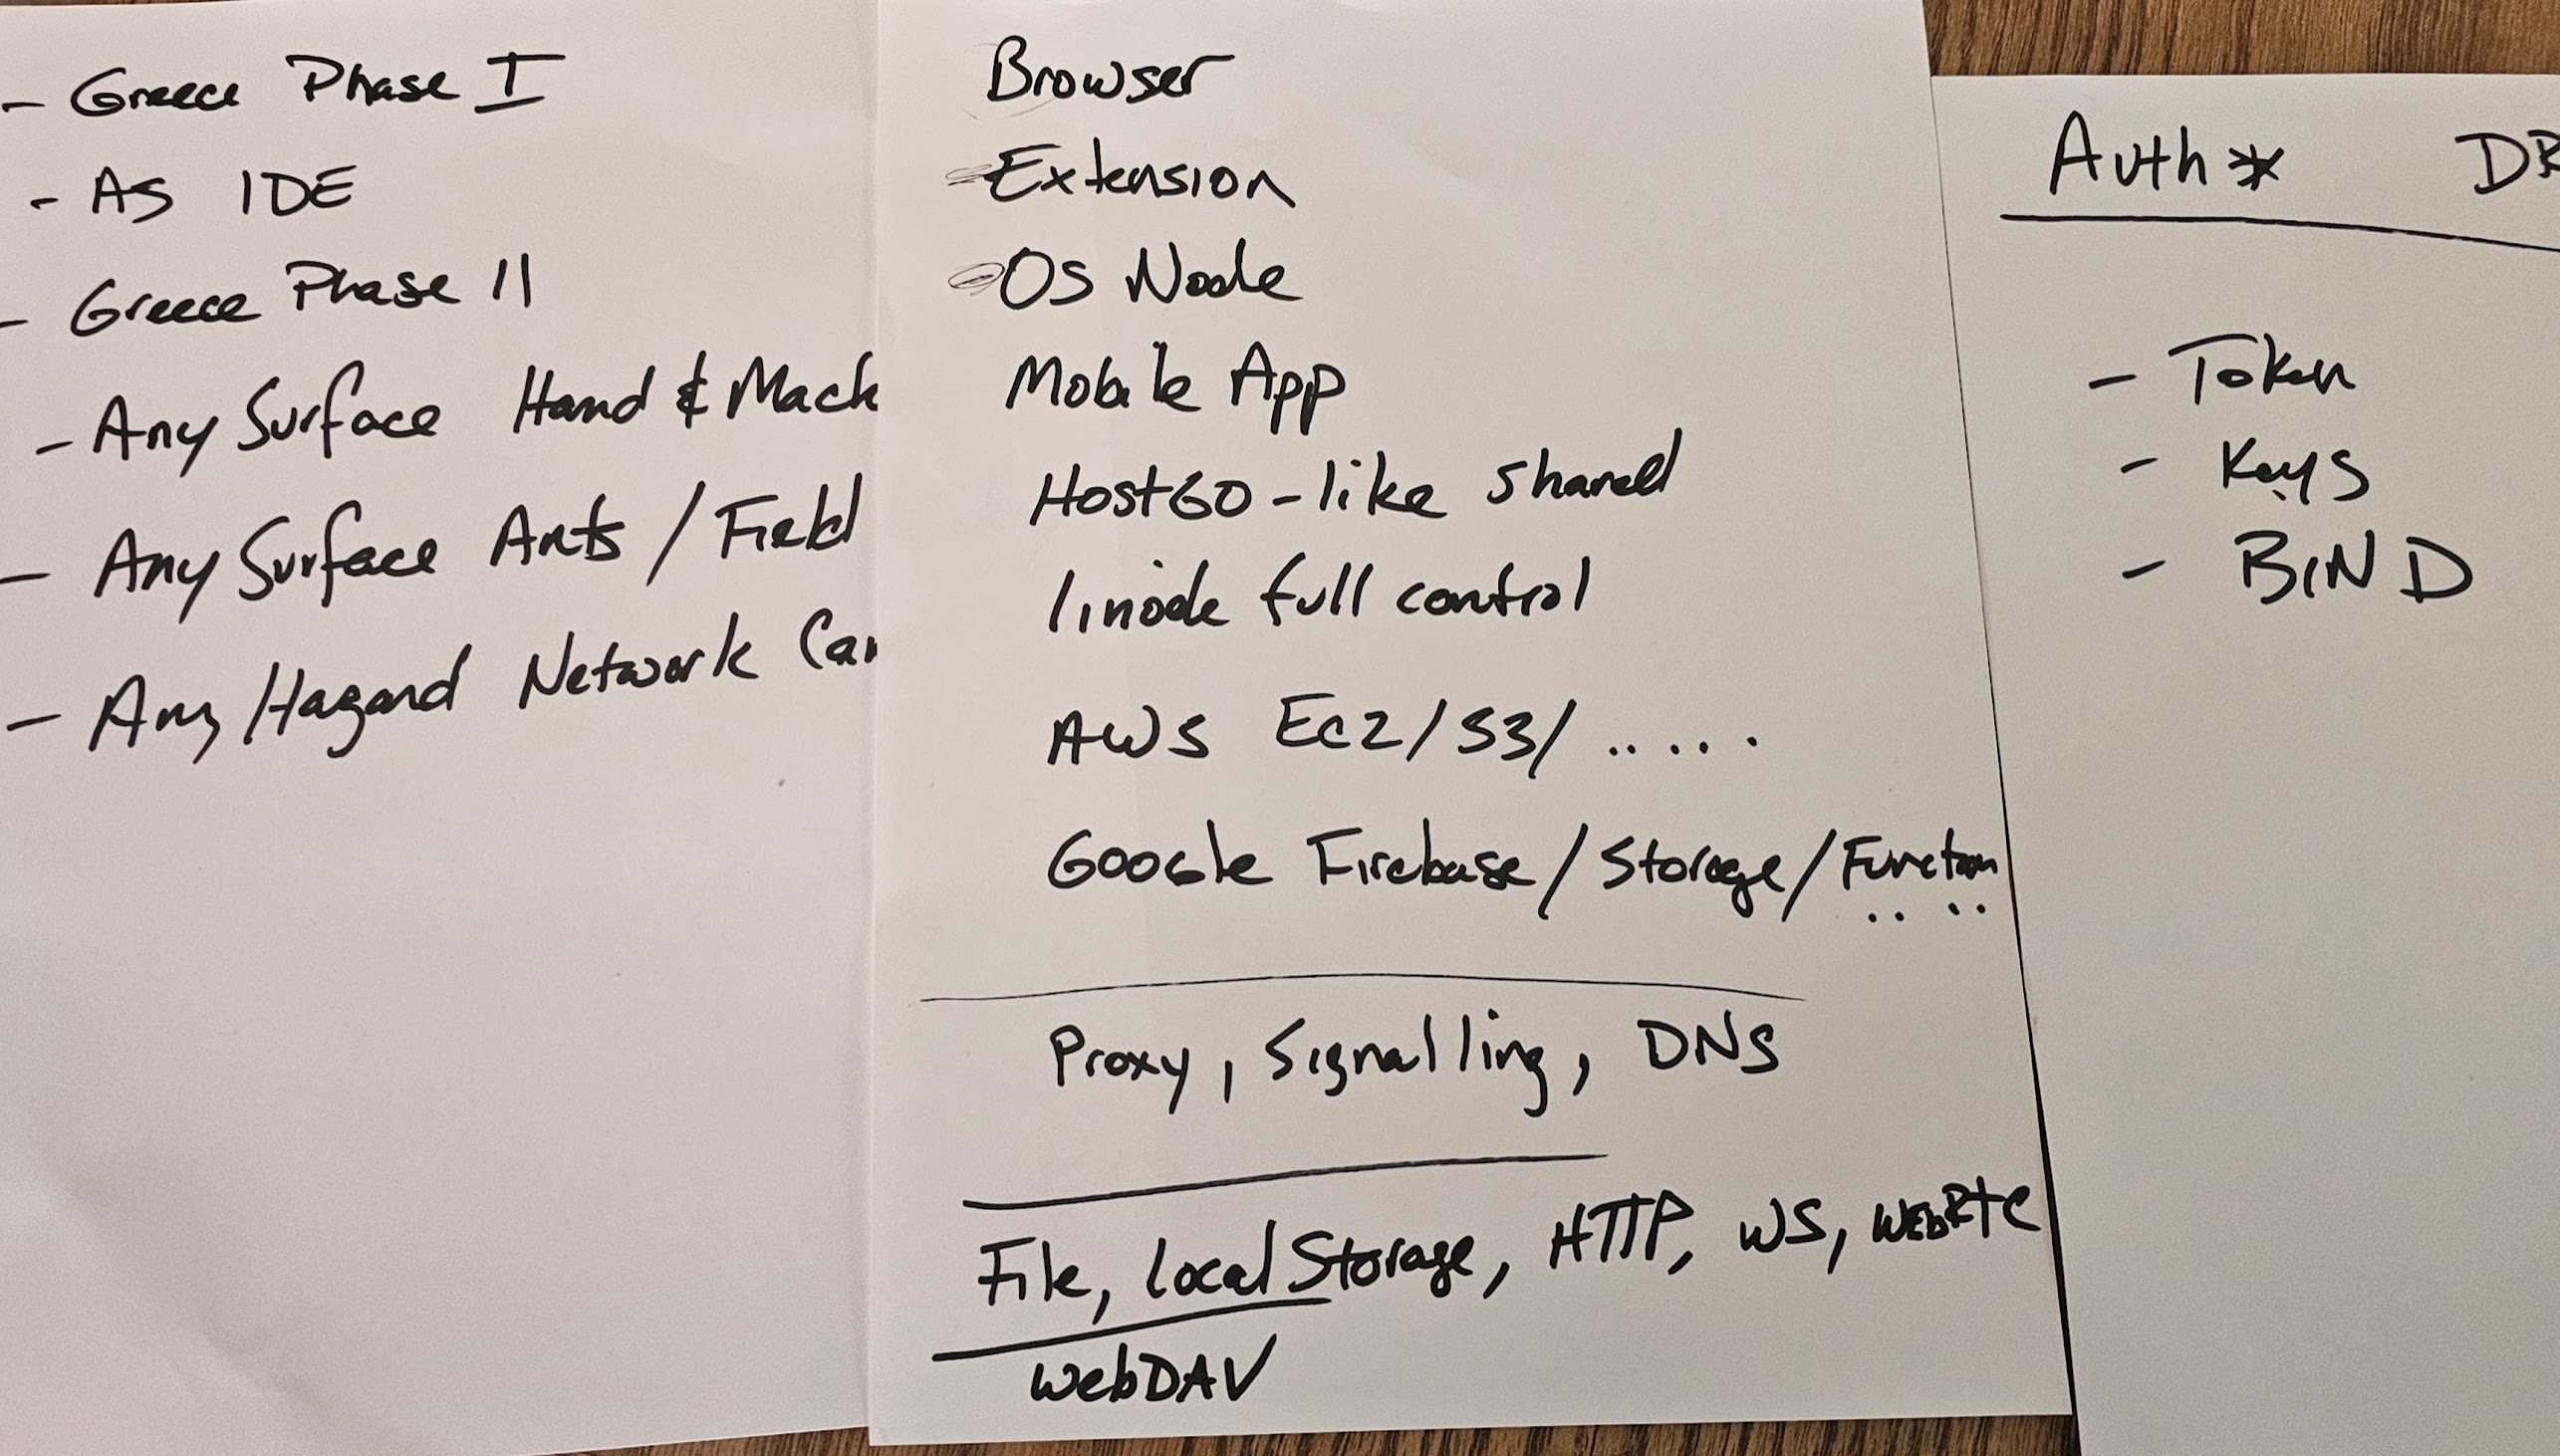 - Greece Phase I
- AS IDE
- Greece Phase II
- Any Surface Hand & Mach
- Any Surface Ants / Field
- Any Hazard Network Car
Browser
Extension
OS Node
Mobile App
HostGO-like shared
linode full control
AWS EC2/S3/.....
Google Firebase/Storage/Function
....
Proxy, Signalling, DNS
File, Local Storage, HTTP, WS, WEBRTC
WebDAV
Auth* DB
- Token
- Keys
- BIND